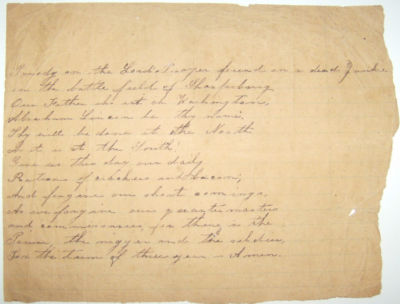 Parody on the Lord's Prayer found on a dead Yankee
on the battle field of Sharpsburg
Our Father who art in Washington,
Abraham Lincoln be thy name,
Thy will be done at the North
As it is at the South!
Give us this day our daily
Rations of crackers and bacon,
And forgive our short comings,
As we forgive our quartermasters
and commissaries, for thine is the
Power, the and the soldiers,
For the term of three years - Amen.